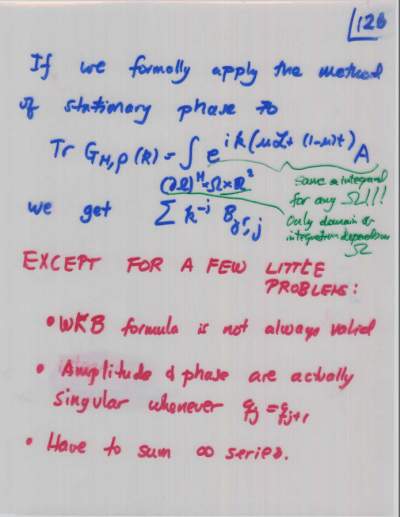 126
If we formally apply the method
of stationary phase to
Tr G_{H,ρ}(k) = ∫ e^{ik(μL + (1-μ)t)} A
(∂Ω)^M × Ω × R^2
Same integrand
for any Ω!!!
Only domain of
integration depends on
Ω
we get Σ k^{-j} B_{γ,j}
EXCEPT FOR A FEW LITTLE
PROBLEMS:
• WKB formula is not always valid
• Amplitude & phase are actually
singular whenever q_j = q_{j+1}
• Have to sum ∞ series.